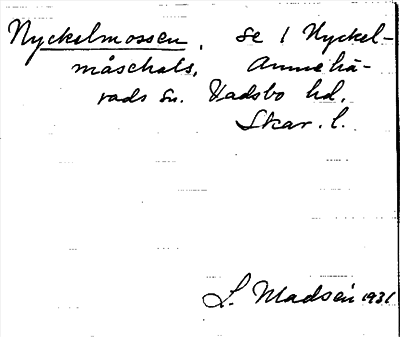 Nyckelmossen, se 1 Nyckel-
måschals, Amnehä-
rads sn. Vadsbo hd.
Skar. l.
L. Madsén 1931